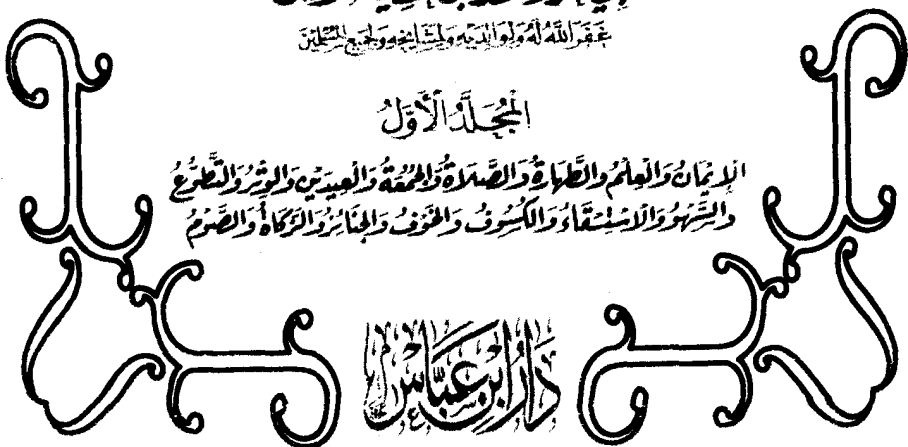 غَفَرَ اللَّهُ لَهُ وَلِوَالِدَيْهِ وَلِمَشَايِخِهِ وَلِجَمِيعِ الْمُسْلِمِيْنَ
الْمُجَلَّدُ الْأَوَّلُ
الْإِيْمَانُ وَالْعِلْمُ وَالطَّهَارَةُ وَالصَّلَاةُ وَالْجُمُعَةُ وَالْعِيدَيْنِ وَالْوِتْرُ وَالتَّطَوُّعُ
وَالسَّهْوُ وَالْاسْتِسْقَاءُ وَالْكُسُوفُ وَالْخَوْفُ وَالْجَنَائِزُ وَالزَّكَاةُ وَالصَّوْمُ
دَارُ ابْنِ عَبَّاسٍ